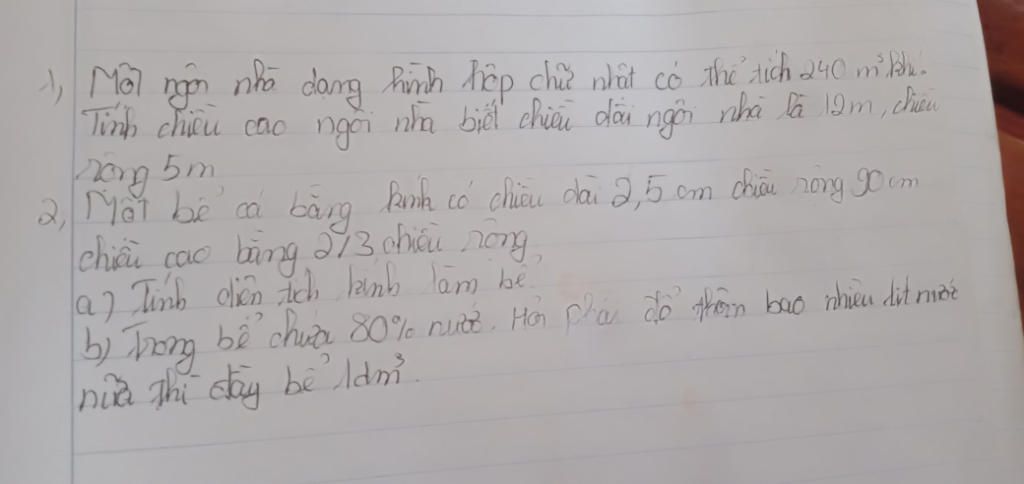 1, Một ngôn nhà dạng hình hộp chữ nhật có thể tích 240 m³ khí.
Tính chiều cao ngôi nhà biết chiều dài ngôi nhà là 12m, chiều
rông 5m
2, Một bể cá bằng kính có chiều dài 2,5 cm chiều rông 90 cm
chiều cao bằng 2/3 chiều rông,
a) Tính diên tích kính làm bể
b) Trong bể chứa 80% nước. Hỏi phải đổ thêm bao nhiêu lít nước
nữa thì đầy bể 1dm³.